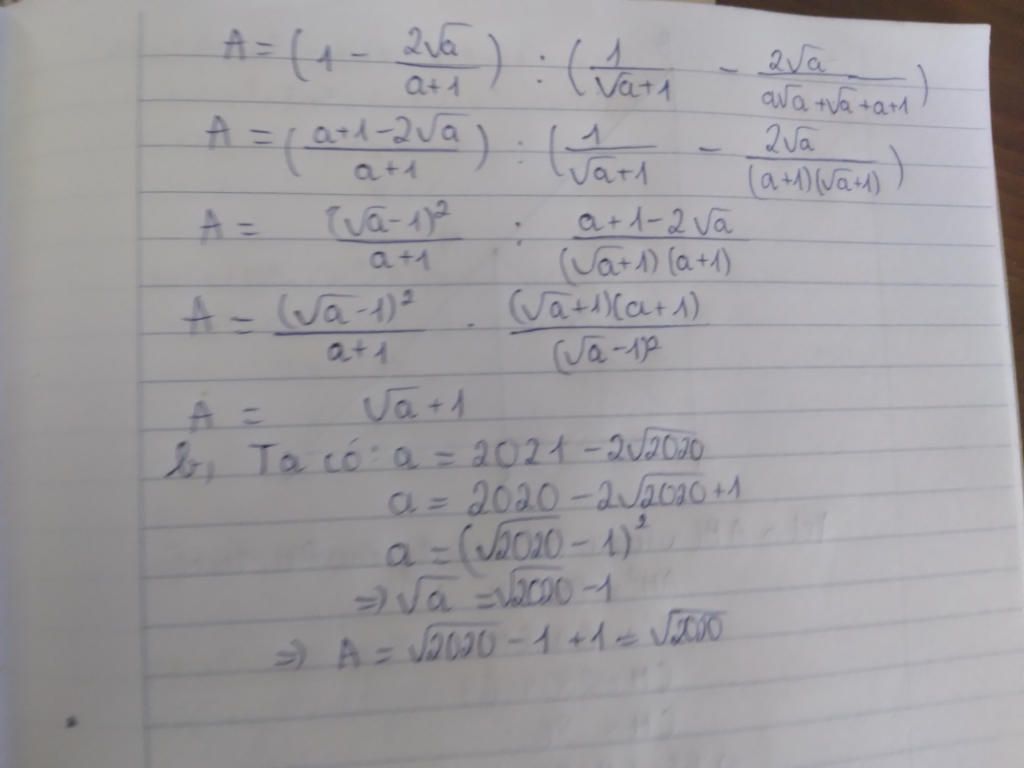 A = (1 - 2√a/(a+1)) : (1/(√a+1) - 2√a/(a√a+√a+a+1))
A = ((a+1-2√a)/(a+1)) : (1/(√a+1) - 2√a/((a+1)(√a+1)))
A = (√a-1)²/(a+1) : (a+1-2√a)/((√a+1)(a+1))
A = (√a-1)²/(a+1) . (√a+1)(a+1)/(√a-1)²
A = √a+1
b, Ta có: a = 2021 - 2√2020
a = 2020 - 2√2020 + 1
a = (√2020 - 1)²
⇒ √a = √2020 - 1
⇒ A = √2020 - 1 + 1 = √2020